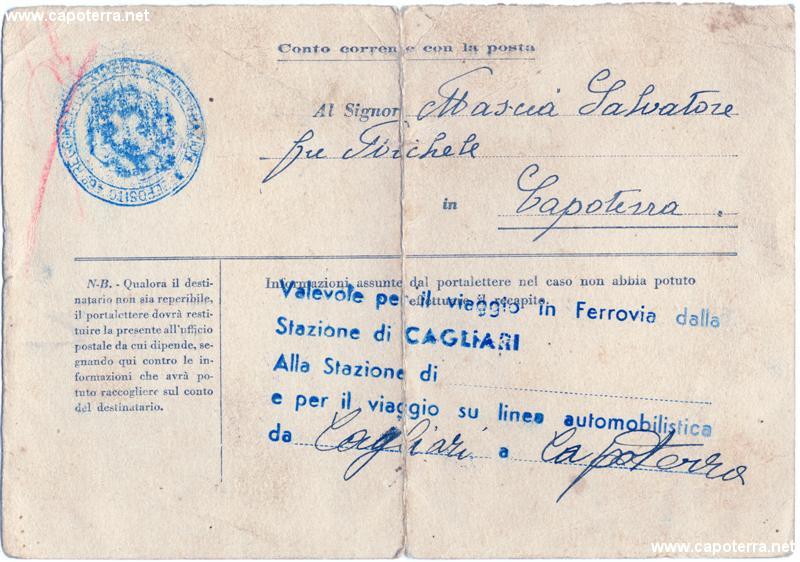 www.capoterra.net
www.capoterra.net
Conto corrente con la posta
Al Signor Mascia Salvatore
fu
in Capoterra.
N-B. - Qualora il desti-
natario non sia reperibile,
il portalettere dovrà resti-
tuire la presente all'ufficio
postale da cui dipende, se-
gnando qui contro le in-
formazioni che avrà po-
tuto raccogliere sul conto
del destinatario.
Informazioni assunte dal portalettere nel caso non abbia potuto
effettuare il recapito
Valevole per il viaggio in Ferrovia dalla
Stazione di CAGLIARI
Alla Stazione di
e per il viaggio su linea automobilistica
da Cagliari a Capoterra
DEPOSITO
www.capoterra.net